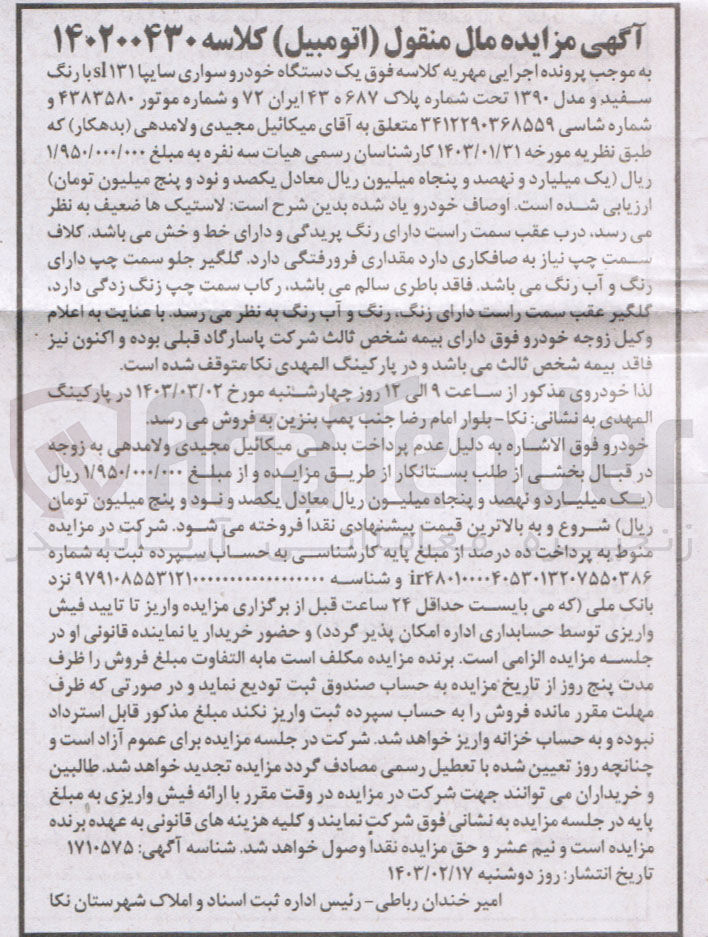 آگهی مزایده مال منقول (اتومبیل) کلاسه ۱۴۰۲۰۰۴۳۰
به موجب پرونده اجرایی مهریه کلاسه فوق یک دستگاه خودرو سواری سایپا sl۱۳۱ با رنگ
سفید و مدل ۱۳۹۰ تحت شماره پلاک ۶۸۷ ه ۴۳ ایران ۷۲ و شماره موتور ۴۳۸۳۵۸۰ و
شماره شاسی ۳۴۱۲۲۹۰۳۶۸۵۵۹ متعلق به آقای میکائیل مجیدی ولامدهی (بدهکار) که
طبق نظریه مورخه ۱۴۰۳/۰۱/۳۱ کارشناسان رسمی هیات سه نفره به مبلغ ۱/۹۵۰/۰۰۰/۰۰۰
ریال (یک میلیارد و نهصد و پنجاه میلیون ریال معادل یکصد و نود و پنج میلیون تومان)
ارزیابی شده است. اوصاف خودرو یاد شده بدین شرح است: لاستیک ها ضعیف به نظر
می رسد، درب عقب سمت راست دارای رنگ پریدگی و دارای خط و خش می باشد. کلاف
سمت چپ نیاز به صافکاری دارد مقداری فرورفتگی دارد. گلگیر جلو سمت چپ دارای
رنگ و آب رنگ می باشد. فاقد باطری سالم می باشد، رکاب سمت چپ زنگ زدگی دارد،
گلگیر عقب سمت راست دارای زنگ، رنگ و آب رنگ به نظر می رسد. با عنایت به اعلام
وکیل زوجه خودرو فوق دارای بیمه شخص ثالث شرکت پاسارگاد قبلی بوده و اکنون نیز
فاقد بیمه شخص ثالث می باشد و در پارکینگ المهدی نکا متوقف شده است.
لذا خودروی مذکور از ساعت ۹ الی ۱۲ روز چهارشنبه مورخ ۱۴۰۳/۰۳/۰۲ در پارکینگ
المهدی به نشانی: نکا- بلوار امام رضا جنب پمپ بنزین به فروش می رسد.
خودرو فوق الاشاره به دلیل عدم پرداخت بدهی میکائیل مجیدی ولامدهی به زوجه
در قبال بخشی از طلب بستانکار از طریق مزایده و از مبلغ ۱/۹۵۰/۰۰۰/۰۰۰ ریال
(یک میلیارد و نهصد و پنجاه میلیون ریال معادل یکصد و نود و پنج میلیون تومان
ریال) شروع و به بالاترین قیمت پیشنهادی نقداً فروخته می شود. شرکت در مزایده
منوط به پرداخت ده درصد از مبلغ پایه کارشناسی به حساب سپرده ثبت به شماره
ir۴۸۰۱۰۰۰۰۴۰۵۳۰۱۳۲۰۷۵۵۰۳۸۶ و شناسه ۹۷۹۱۰۸۵۵۳۱۲۱۰۰۰۰۰۰۰۰۰۰۰۰۰۰۰۰۰۰ نزد
بانک ملی (که می بایست حداقل ۲۴ ساعت قبل از برگزاری مزایده واریز تا تایید فیش
واریزی توسط حسابداری اداره امکان پذیر گردد) و حضور خریدار یا نماینده قانونی او در
جلسه مزایده الزامی است. برنده مزایده مکلف است مابه التفاوت مبلغ فروش را ظرف
مدت پنج روز از تاریخ مزایده به حساب صندوق ثبت تودیع نماید و در صورتی که ظرف
مهلت مقرر مانده فروش را به حساب سپرده ثبت واریز نکند مبلغ مذکور قابل استرداد
نبوده و به حساب خزانه واریز خواهد شد. شرکت در جلسه مزایده برای عموم آزاد است و
چنانچه روز تعیین شده با تعطیل رسمی مصادف گردد مزایده تجدید خواهد شد. طالبین
و خریداران می توانند جهت شرکت در مزایده در وقت مقرر با ارائه فیش واریزی به مبلغ
پایه در جلسه مزایده به نشانی فوق شرکت نمایند و کلیه هزینه های قانونی به عهده برنده
مزایده است و نیم عشر و حق مزایده نقداً وصول خواهد شد. شناسه آگهی: ۱۷۱۰۵۷۵
تاریخ انتشار: روز دوشنبه ۱۴۰۳/۰۲/۱۷
امیر خندان رباطی- رئیس اداره ثبت اسناد و املاک شهرستان نکا
AriaTender